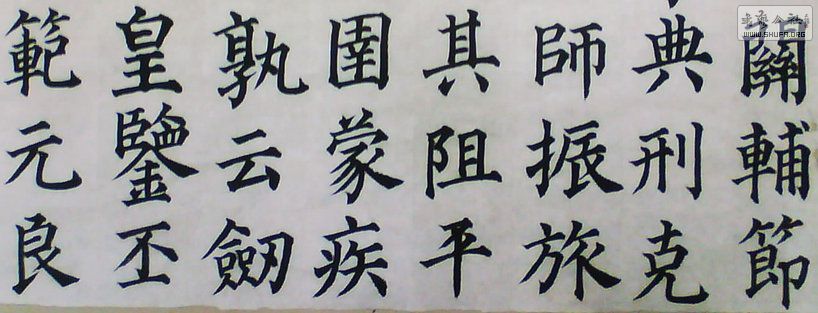 關輔節
典刑克
師振旅
其阻平
圉蒙疾
孰云劒
皇鑒丕
範元良
WWW.SHUFA.ORG